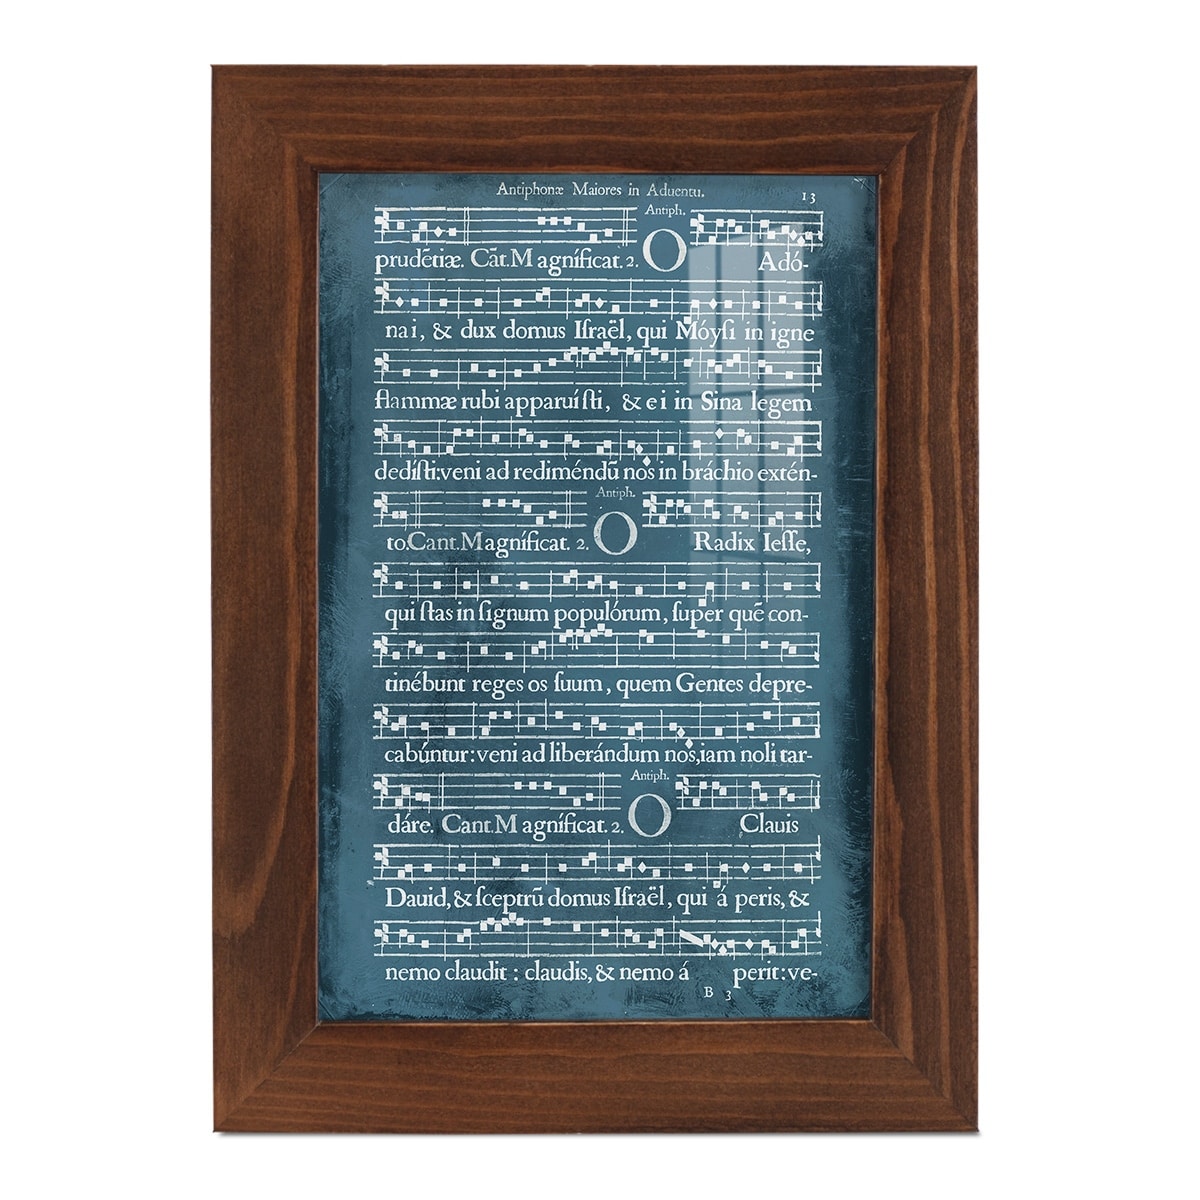 Antiphonæ Maiores in Aduentu.
13
Antiph.
prudẽtiæ. Cãt.M agníficat. 2. O Adó-
nai, & dux domus Iſraël, qui Móyſi in igne
flammæ rubi apparuíſti, & ei in Sina legem
dedíſti:veni ad rediméndũ nos in bráchio extén-
Antiph.
to.Cant.Magníficat. 2. O Radix Ieſſe,
qui ſtas in ſignum populórum, ſuper quẽ con-
tinébunt reges os ſuum, quem Gentes depre-
cabúntur:veni ad liberándum nos,iam noli tar-
Antiph.
dáre. Cant.M agníficat. 2. O Clauis
Dauid, & ſceptrũ domus Iſraël, qui á peris, &
nemo claudit : claudis, & nemo á perit:ve-
B 3